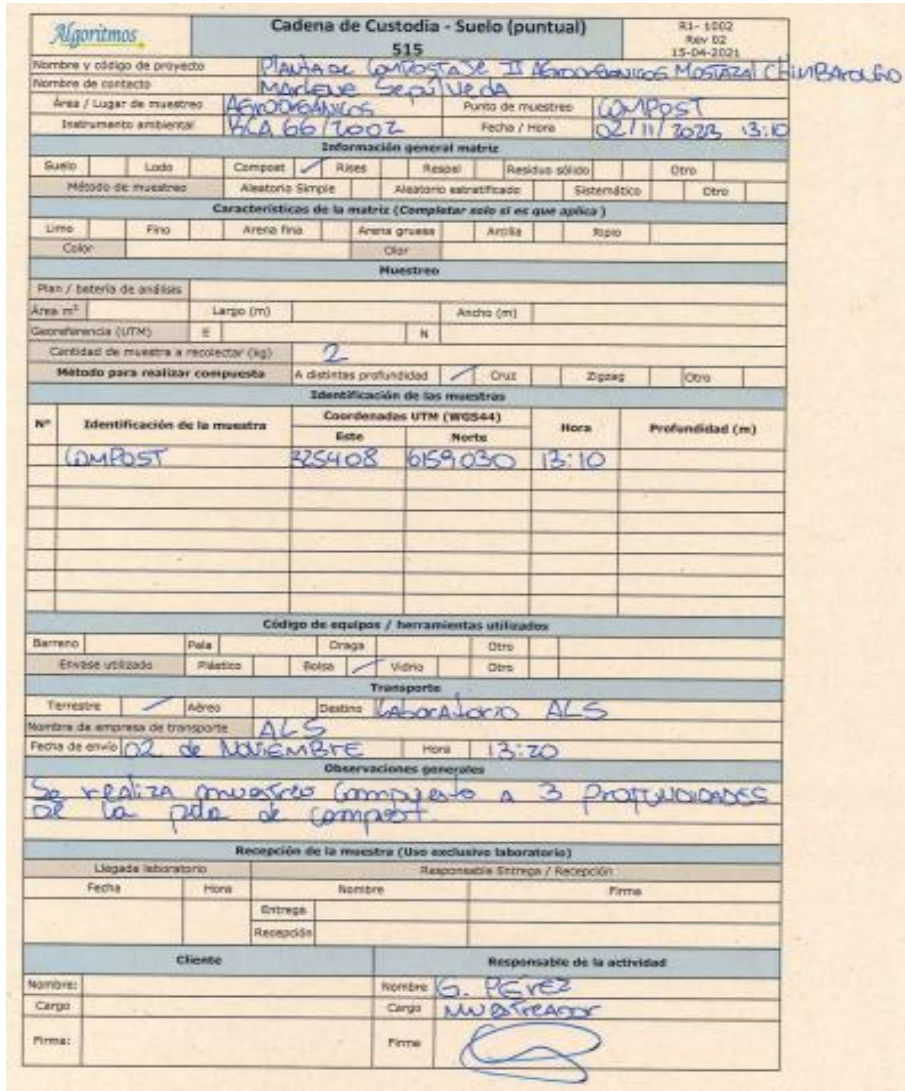 Algoritmos
Cadena de Custodia - Suelo (puntual)
515
R1- 1002
Rev 02
15-04-2021
Nombre y código de proyecto PLANTA DE COMPOSTAJE II AGROORGANICOS MOSTAZAL CHIMBARONGO
Nombre de contacto MARLENE SEPÚLVEDA
Área / Lugar de muestreo AGROORGÁNICOS Punto de muestreo COMPOST
Instrumento ambiental RCA 66/2002 Fecha / Hora 02/11/2023 13:10
Información general matriz
Suelo Lodo Compost Rises Respel Residuo sólido Otro
Método de muestreo Aleatorio Simple Aleatorio estratificado Sistemático Otro
Características de la matriz (Completar solo si es que aplica)
Limo Fino Arena fina Arena gruesa Arcilla Ripio
Color Olor
Muestreo
Plan / batería de análisis
Área m² Largo (m) Ancho (m)
Georeferencia (UTM) E N
Cantidad de muestra a recolectar (kg) 2
Método para realizar compuesta A distintas profundidad Cruz Zigzag Otro
Identificación de las muestras
Nº Identificación de la muestra Coordenadas UTM (WGS44) Hora Profundidad (m)
Este Norte
COMPOST 325408 6159030 13:10
Código de equipos / herramientas utilizados
Barreno Pala Draga Otro
Envase utilizado Plástico Bolsa Vidrio Otro
Transporte
Terrestre Aéreo Destino LABORATORIO ALS
Nombre de empresa de transporte ALS
Fecha de envío 02 de NOVIEMBRE Hora 13:20
Observaciones generales
Se realiza muestreo compuesto a 3 PROFUNDIDADES
DE la pila de compost.
Recepción de la muestra (Uso exclusivo laboratorio)
Llegada laboratorio Responsable Entrega / Recepción
Fecha Hora Nombre Firma
Entrega
Recepción
Cliente Responsable de la actividad
Nombre: Nombre G. PÉREZ
Cargo Cargo MUESTREADOR
Firma: Firma